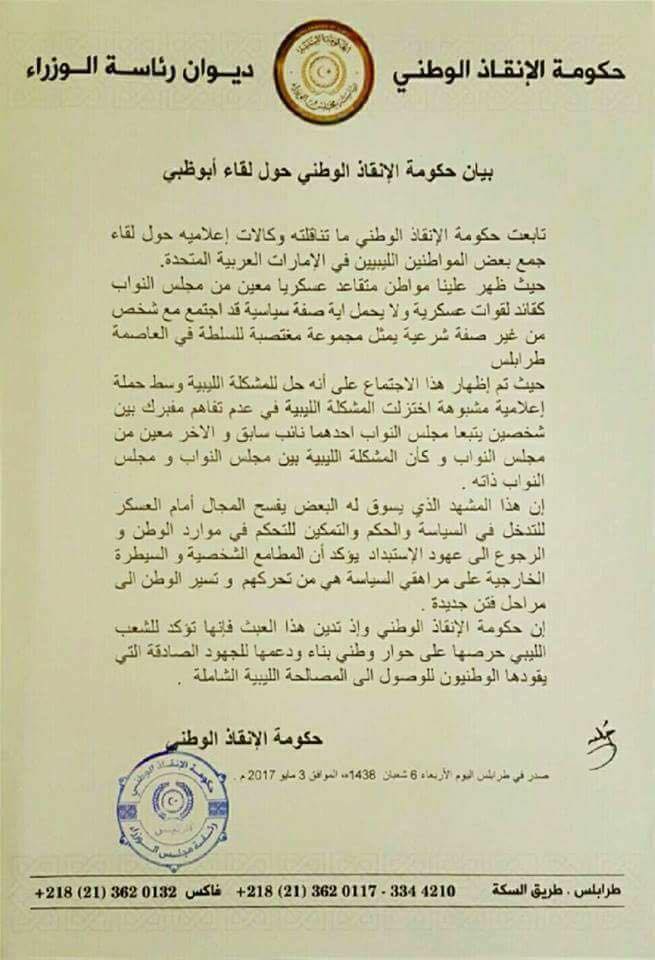 حكومة الإنقاذ الوطني
ديوان رئاسة الوزراء
بيان حكومة الإنقاذ الوطني حول لقاء أبوظبي
تابعت حكومة الإنقاذ الوطني ما تناقلته وكالات إعلاميه حول لقاء
جمع بعض المواطنين الليبيين في الإمارات العربية المتحدة.
حيث ظهر علينا مواطن متقاعد عسكريا معين من مجلس النواب
كقائد لقوات عسكرية ولا يحمل اية صفة سياسية قد اجتمع مع شخص
من غير صفة شرعية يمثل مجموعة مغتصبة للسلطة في العاصمة
طرابلس
حيث تم إظهار هذا الاجتماع على أنه حل للمشكلة الليبية وسط حملة
إعلامية مشبوهة اختزلت المشكلة الليبية في عدم تفاهم مفبرك بين
شخصين يتبعا مجلس النواب احدهما نائب سابق و الاخر معين من
مجلس النواب و كأن المشكلة الليبية بين مجلس النواب و مجلس
النواب ذاته .
إن هذا المشهد الذي يسوق له البعض يفسح المجال أمام العسكر
للتدخل في السياسة والحكم والتمكين للتحكم في موارد الوطن و
الرجوع الى عهود الإستبداد يؤكد أن المطامع الشخصية و السيطرة
الخارجية على مراهقي السياسة هي من تحركهم و تسير الوطن الى
مراحل فتن جديدة .
إن حكومة الإنقاذ الوطني وإذ تدين هذا العبث فإنها تؤكد للشعب
الليبي حرصها على حوار وطني بناء ودعمها للجهود الصادقة التي
يقودها الوطنيون للوصول الى المصالحة الليبية الشاملة .
حكومة الإنقاذ الوطني
صدر في طرابلس اليوم الأربعاء 6 شعبان 1438هـ الموافق 3 مايو 2017 م .
حكومة الإنقاذ الوطني
رئاسة مجلس الوزراء
طرابلس . طريق السكة +218 (21) 362 0117 - 334 4210 فاكس +218 (21) 362 0132